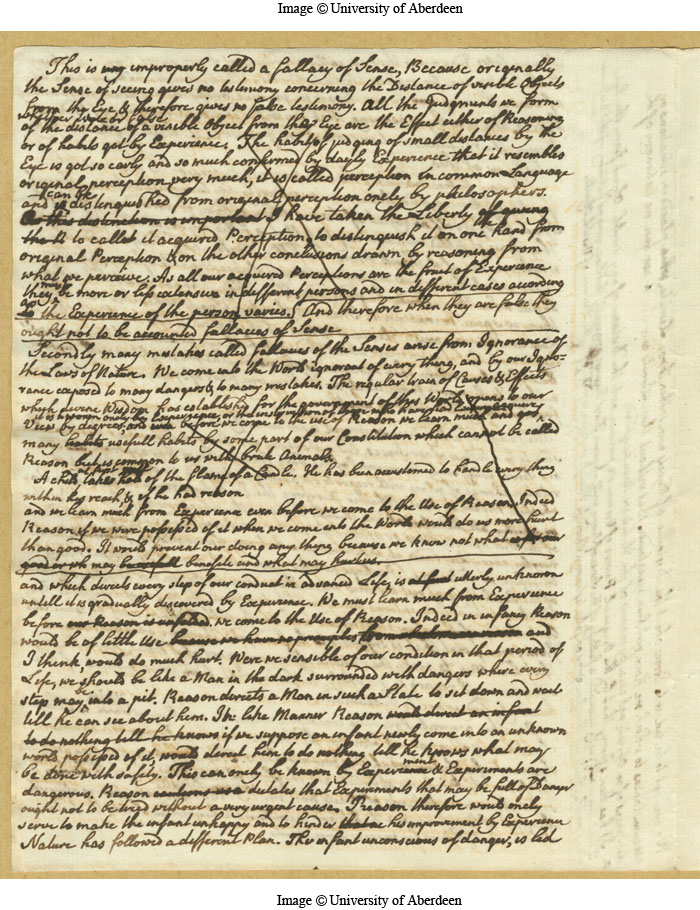 Image © University of Aberdeen
This is ung improperly called a fallacy of Sense, Because originally
the Sense of seeing gives no testimony concerning the Distance of visible Objects
from the Eye & therefore gives no false testimony. All the Judgments we form
whether true or false
of the distance of a visible Object from the Eye are the Effect either of Reasoning
or of habits got by Experience, The habit of judging of small distances by the
Eye is got so early and so much confirmed by daily Experience that it resembles
original perception very much, it is called perception in common Language
can be
and is distinguished from original perception onely by philosophers.
But this distinction is important I have taken the Liberty of giving
the to callet it acquired Perception, to distinguish it on one hand from
original Perception & on the other conclusions drawn by reasoning from
what we perceive. As all our acquired Perceptions are the fruit of Experience
must
they be more or less extensive in different persons and in different cases acording
as the Experience of the person varies. And therefore when they are false they
ought not to be accounted fallacies of Sense
Secondly many mistakes called fallacies of the Senses arise from Ignorance of
the Laws of Nature. We come into the World ignorant of every thing, and by our Igno-
rance exposed to many dangers & to many mistakes. The regular train of Causes & Effects
which divine Wisdom has established for the government of this World opens to our
it is known only by Experience, or the instruction of those who have had Experience
View by degrees, and before we come to the use of Reason we learn much and
many habits usefull habits by some part of our Constitution which cannot be called
Reason but is common to us with brute Animals
A child takes hold of the flame of a Candle. He has been accustomed to handle every thing
within his reach, & if he had reason
and we learn much from Experience even before we come to the Use of Reason. Indeed
Reason if we were possessed of it when we come into the World would do us more hurt
than good. It would prevent our doing any thing because we know not what is for our
good or wh may be usefull benefite and what may hurt us.
and which directs every step of our conduct in advanced Life, is at first utterly unknown
untill it is gradually discovered by Experience. We must learn much from Experience
before our Reason is unfolded. we come to the Use of Reason. Indeed in infancy Reason
would be of little Use because we have no principles from whence to reason and
I think, would do much hurt. Were we sensible of our condition in that period of
Life, we should be like a Man in the dark surrounded with dangers where every
be
step may into a pit. Reason directs a Man in such a State to set down and wait
till he can see about him. In like Manner Reason would direct an infant
to do nothing till he knows if we suppose an infant newly come into an unknown
world possessed of it, would direct him to do nothing till he knows what may
ment
be done with safety. This can onely be known by Experience & Experiments are
dangerous. Reason dictates that Experiments that may be full of Danger
ought not to be tried without a very urgent cause. Reason therefore would onely
serve to make the infant unhappy and to hinder his improvement by Experience
Nature has followed a different Plan. The infant unconscious of danger, is led
Image © University of Aberdeen